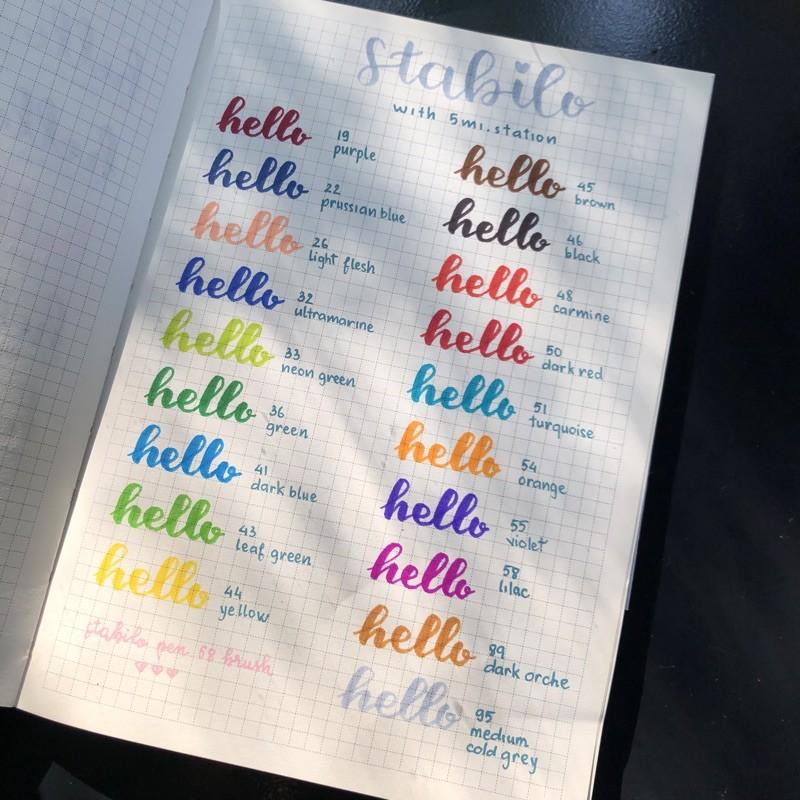 stabilo
with 5mi.station
hello 19 purple
hello 22 prussian blue
hello 26 light flesh
hello 32 ultramarine
hello 33 neon green
hello 36 green
hello 41 dark blue
hello 43 leaf green
hello 44 yellow
stabilo pen 68 brush
hello 45 brown
hello 46 black
hello 48 carmine
hello 50 dark red
hello 51 turquoise
hello 54 orange
hello 55 violet
hello 58 lilac
hello 89 dark orche
hello 95 medium cold grey